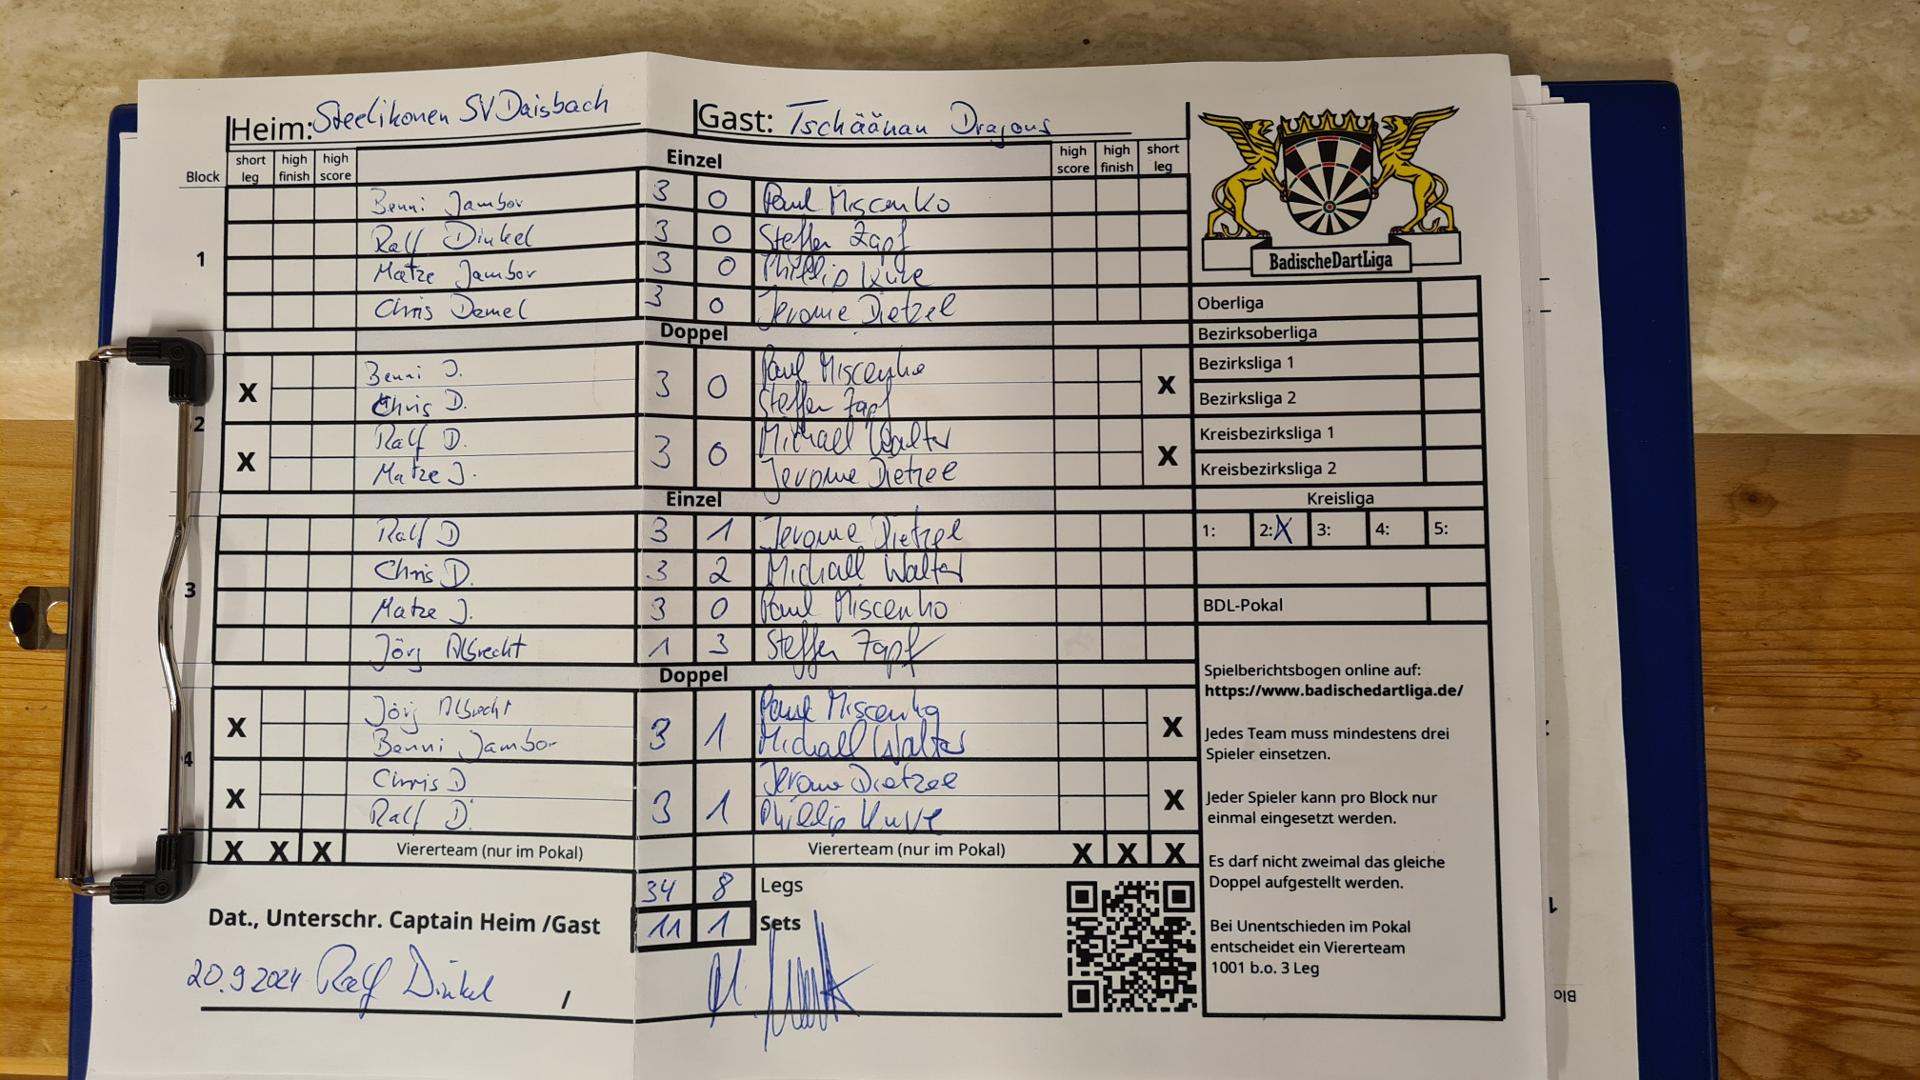 Heim: Steelikonen SV Daisbach Gast: Tschäänau Dragons
Block short leg high finish high score Einzel high score high finish short leg
1
Benni Jambor 3 0 Paul Miscenko
Ralf Dinkel 3 0 Steffen Zapf
Matze Jambor 3 0 Phillip Kuve
Chris Demel 3 0 Jerome Dietzel
Doppel
2
X Benni J. 3 0 Paul Miscenko X
Chris D. Steffen Zapf
X Ralf D. 3 0 Michael Walter X
Matze J. Jerome Dietzel
Einzel
3
Ralf D 3 1 Jerome Dietzel
Chris D. 3 2 Michael Walter
Matze J. 3 0 Paul Miscenko
Jörg Albrecht 1 3 Steffen Zapf
Doppel
4
X Jörg Albrecht 3 1 Paul Miscenko X
Benni Jambor Michael Walter
X Chris D 3 1 Jerome Dietzel X
Ralf D. Phillip Kuve
X X X Viererteam (nur im Pokal) Viererteam (nur im Pokal) X X X
34 8 Legs
11 1 Sets
Dat., Unterschr. Captain Heim /Gast
20.9.2024 Ralf Dinkel /
BadischeDartLiga
Oberliga
Bezirksoberliga
Bezirksliga 1
Bezirksliga 2
Kreisbezirksliga 1
Kreisbezirksliga 2
Kreisliga
1: 2: X 3: 4: 5:
BDL-Pokal
Spielberichtsbogen online auf:
https://www.badischedartliga.de/
Jedes Team muss mindestens drei
Spieler einsetzen.
Jeder Spieler kann pro Block nur
einmal eingesetzt werden.
Es darf nicht zweimal das gleiche
Doppel aufgestellt werden.
Bei Unentschieden im Pokal
entscheidet ein Viererteam
1001 b.o. 3 Leg